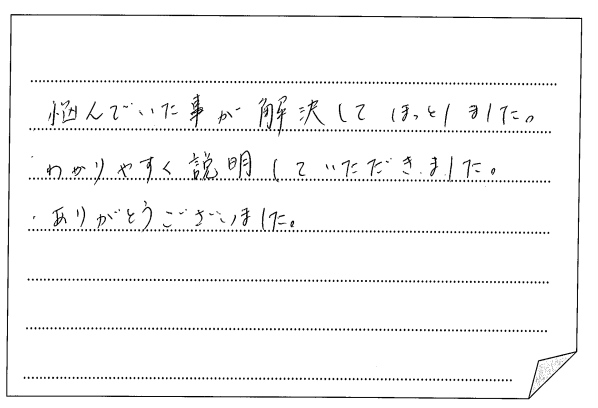 悩んでいた事が解決してほっとしました。
わかりやすく説明していただきました。
ありがとうございました。